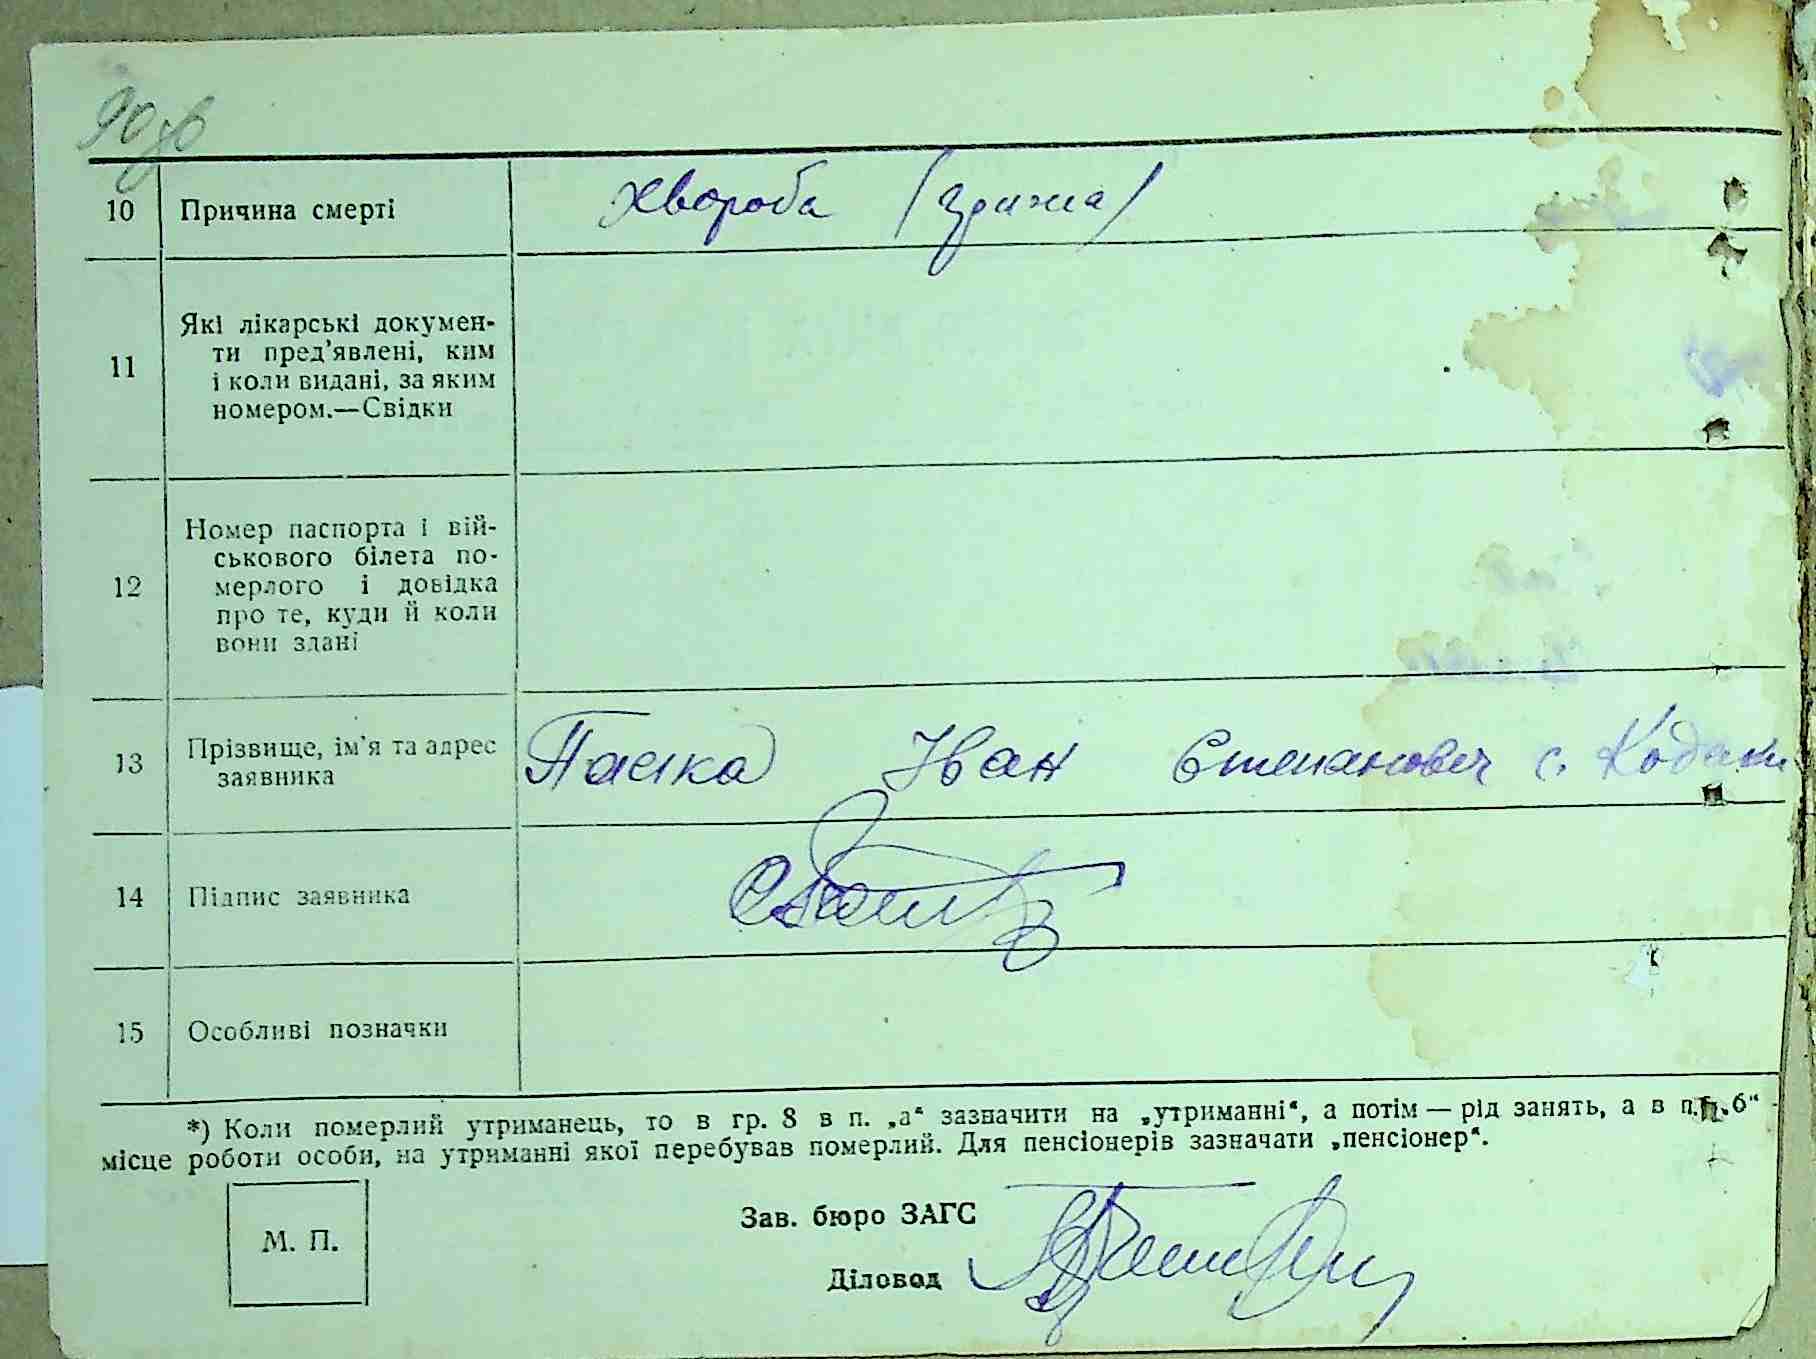 90
10 Причина смерті Хвороба (грижа)
11 Які лікарські докумен-
ти пред'явлені, ким
і коли видані, за яким
номером.—Свідки
12 Номер паспорта і вій-
ськового білета по-
мерлого і довідка
про те, куди й коли
вони здані
13 Прізвище, ім'я та адрес Іван Степанович с. Кодаки
заявника
14 Підпис заявника
15 Особливі позначки
*) Коли померлий утриманець, то в гр. 8 в п. „а“ зазначити на „утриманні“, а потім — рід занять, а в п. „б“
місце роботи особи, на утриманні якої перебував померлий. Для пенсіонерів зазначати „пенсіонер“.
М. П.
Зав. бюро ЗАГС
Діловод